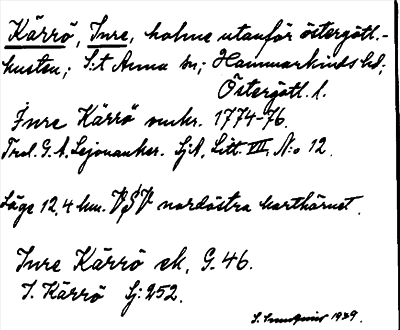 Kärrö, Inre, holme utanför östergötl.-
kusten; S:t Anna sn; Hammarkinds hd;
Östergötl. l.
Inre Kärrö omkr. 1774-76.
Trol. G. A. Lejonanker. SjA, Litt. VIII, N:o 12.
Läge 12,4 km. VSV nordöstra karthörnet.
Inre Kärrö ek, G. 46.
I. Kärrö Sj: 252.
1939.